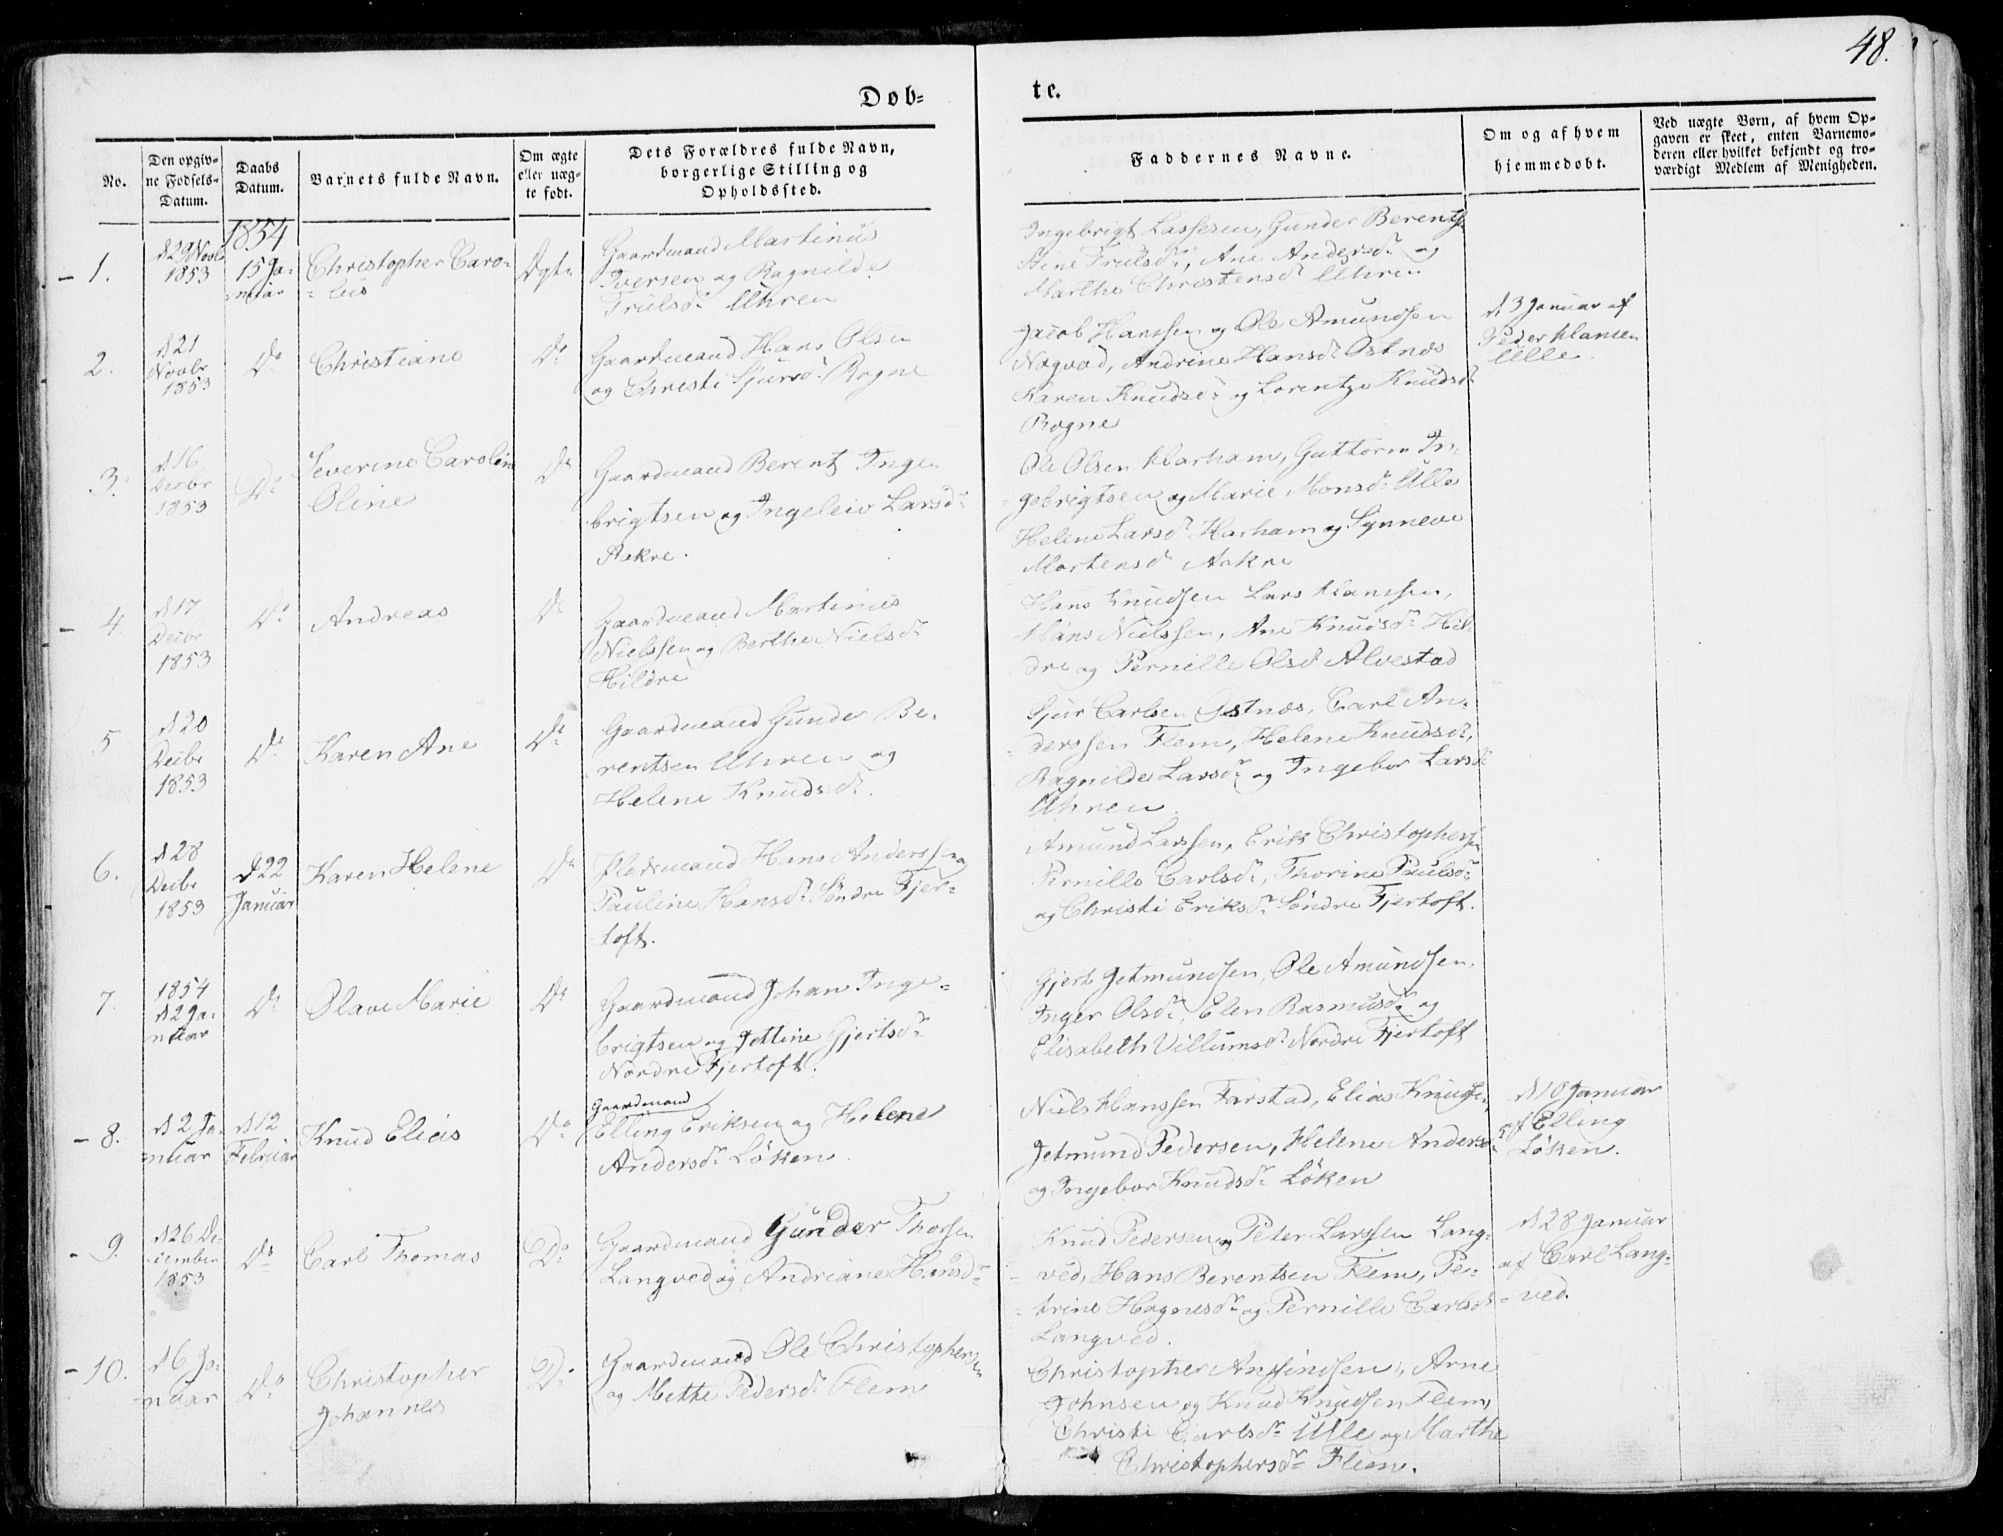 48.
Døb-
te.
No.
Den opgiv-
ne Fødsels-
Datum.
Daabs
Datum.
Barnets fulde Navn.
Om ægte
eller uæg-
te født.
Dets Forældres fulde Navn,
borgerlige Stilling og
Opholdssted.
Faddernes Navne.
Om og af hvem
hjemmedøbt.
Ved uægte Børn, af hvem Op-
gaven er skeet, enten Barnemo-
deren eller hvilket bekjendt og tro-
værdigt Medlem af Menigheden.
1854
1.
d 29 Novbr
1853
15 Ja-
nuar
Christopher Caro-
lus
Ægte
Gaardmand Martinus
Iversen og Ragnilde
Trulsdr Uhren
Ingebrigt Lassesen, Gunder Berents
Stine Trulsdr, Ane Andersdr og
Marthe Christensdr Uhren
2.
d 21
Novbr
1853
Do
Christiane
Do
Gaardmand Hans Olsen
og Christi Sjursdr Rogne
Jacob Hanssen og Ole Amundsen
Nogvad, Andrine Hansdr Østnæs
Karen Knudsdr og Lorentze Knudsdr
Rogne
d 3 Januar af
Peder Hansen
Ulle
3.
d 16
Decbr
1853
Do
Severine Carolin
Oline
Do
Gaardmand Berent Inge-
brigtsen og Ingeleiv Larsdr
Aakre.
Ole Olsen Harham, Guttorm In-
gebrigtsen og Marie Monsdr Ulle
Helene Larsdr Harham og Synneve
Mortensdr Aakre
4.
d 17
Decbr
1853
Do
Andreas
Do
Gaardmand Martinus
Nielssen og Berthe Nielsdr
Hildre
Hans Knudsen Lars Hanssen,
Hans Nielssen, Ane Knudsdr Hil-
dre og Pernille Olsdr Alvestad
5
d 20
Decbr
1853
Do
Karen Ane
Do
Gaardmand Gunder Be-
rentsen Uhren og
Helene Knudsdr.
Sjur Carlsen Østnæs, Carl An-
derssen Flem, Helene Knudsdr,
Ragnilde Larsdr og Ingebor Larsdr
Uhren.
6.
d 28
Decbr
1853
d 22
Januar
Karen Helene
Do
Pladsmand Hans Anderssen og
Pauline Hansdr Søndre Fjer-
toft.
Amund Larssen, Erik Christophersen
Pernille Carlsdr, Thorine Paulsdr
og Christi Eriksdr Søndre Fjertoft.
7.
1854
d 2 Ja-
nuar
Do
Olave Marie
Do
Gaardmand Johan Inge-
brigtsen og Jettine Gjertsdr
Nordre Fjertoft.
Gjert Jetmundsen, Ole Amundsen,
Inger Olsdr, Elen Rasmusdr og
Elisabeth Villumsdr Nordre Fjertoft
8.
d 2 Ja-
nuar
d 12
Februar
Knud Elias
Do
Gaardmand
Elling Eriksen og Helene
Andersdr Løken.
Niels Hanssen Farstad, Elias Knudsen,
Jetmund Pedersen, Helene Andersdr
og Ingebor Knudsdr Løken
d 10 Januar
af Elling
Løken.
9.
d 26 De-
cember
1853
Do
Carl Thomas
Do
Gaardmand Gunder Thorsen
Langved og Andriane Hansdr
Knud Pedersen og Peter Larssen Lang-
ved, Hans Berentsen Flem, Pe-
trine Hognesdr og Pernille Carlsdr
Langved.
d 28 Januar
af Carl Lang-
ved.
10.
d 6 Ja-
nuar
Do
Christopher
Johannes
Do
Gaardmand Ole Christophersen
og Mette Pedersdr Flem
Christopher Amundsen, Arne
Johnsen og Knud Knudsen Flem,
Christi Carlsdr Ulle og Marthe
Christophersdr Flem.